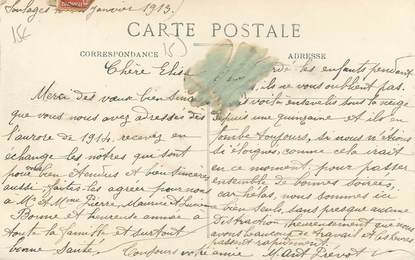 Janvier 1913
CARTE POSTALE
CORRESPONDANCE
ADRESSE
Chère Elisa
garde tes enfants pendant
ils ne vous oublient pas.
Merci des vœux bien sincères
que vous nous avez adressés dès
l'aurore de 1914, recevez en
échange les nôtres qui sont
pour bien étendus et bien sincères
aussi, faites les agréer pour nous
à Mr et Mme Pierre, Maurice et Lucienne
Bonne et heureuse année à
toute la famille et surtout
bonne santé.
Toujours votre amie
voilà ensevelis sous la neige
depuis une quinzaine et il en
tombe toujours, si nous n'étions
si éloignés, comme cela irait
en ce moment, pour passer
ensemble de bonnes soirées,
car hélas, nous sommes ici
bien seuls, sans presque aucune
distraction, heureusement que nous
avons beaucoup de travail et les heures
passent rapidement.
M. Ant Prevot